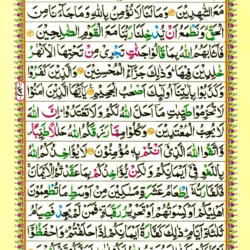 مَعَ الشّٰهِدِيْنَ وَمَا لَنَا لَا نُؤْمِنُ بِاللّٰهِ وَمَا جَآءَنَا مِنَ
الْحَقِّ وَنَطْمَعُ اَنْ يُّدْخِلَنَا رَبُّنَا مَعَ الْقَوْمِ الصّٰلِحِيْنَ
فَاَثَابَهُمُ اللّٰهُ بِمَا قَالُوْا جَنّٰتٍ تَجْرِيْ مِنْ تَحْتِهَا الْاَنْهٰرُ
خٰلِدِيْنَ فِيْهَا وَذٰلِكَ جَزَآءُ الْمُحْسِنِيْنَ وَالَّذِيْنَ كَفَرُوْا
وَكَذَّبُوْا بِاٰيٰتِنَآ اُولٰٓئِكَ اَصْحٰبُ الْجَحِيْمِ يٰٓاَيُّهَا الَّذِيْنَ اٰمَنُوْا
لَا تُحَرِّمُوْا طَيِّبٰتِ مَآ اَحَلَّ اللّٰهُ لَكُمْ وَلَا تَعْتَدُوْا اِنَّ اللّٰهَ
لَا يُحِبُّ الْمُعْتَدِيْنَ وَكُلُوْا مِمَّا رَزَقَكُمُ اللّٰهُ حَلٰلًا طَيِّبًا
وَّاتَّقُوا اللّٰهَ الَّذِيْٓ اَنْتُمْ بِهٖ مُؤْمِنُوْنَ لَا يُؤَاخِذُكُمُ اللّٰهُ
بِاللَّغْوِ فِيْٓ اَيْمَانِكُمْ وَلٰكِنْ يُّؤَاخِذُكُمْ بِمَا عَقَّدْتُّمُ الْاَيْمَانَ
فَكَفَّارَتُهٗٓ اِطْعَامُ عَشَرَةِ مَسٰكِيْنَ مِنْ اَوْسَطِ مَا تُطْعِمُوْنَ
اَهْلِيْكُمْ اَوْ كِسْوَتُهُمْ اَوْ تَحْرِيْرُ رَقَبَةٍ فَمَنْ لَّمْ يَجِدْ فَصِيَامُ
ثَلٰثَةِ اَيَّامٍ ذٰلِكَ كَفَّارَةُ اَيْمَانِكُمْ اِذَا حَلَفْتُمْ وَاحْفَظُوْٓا